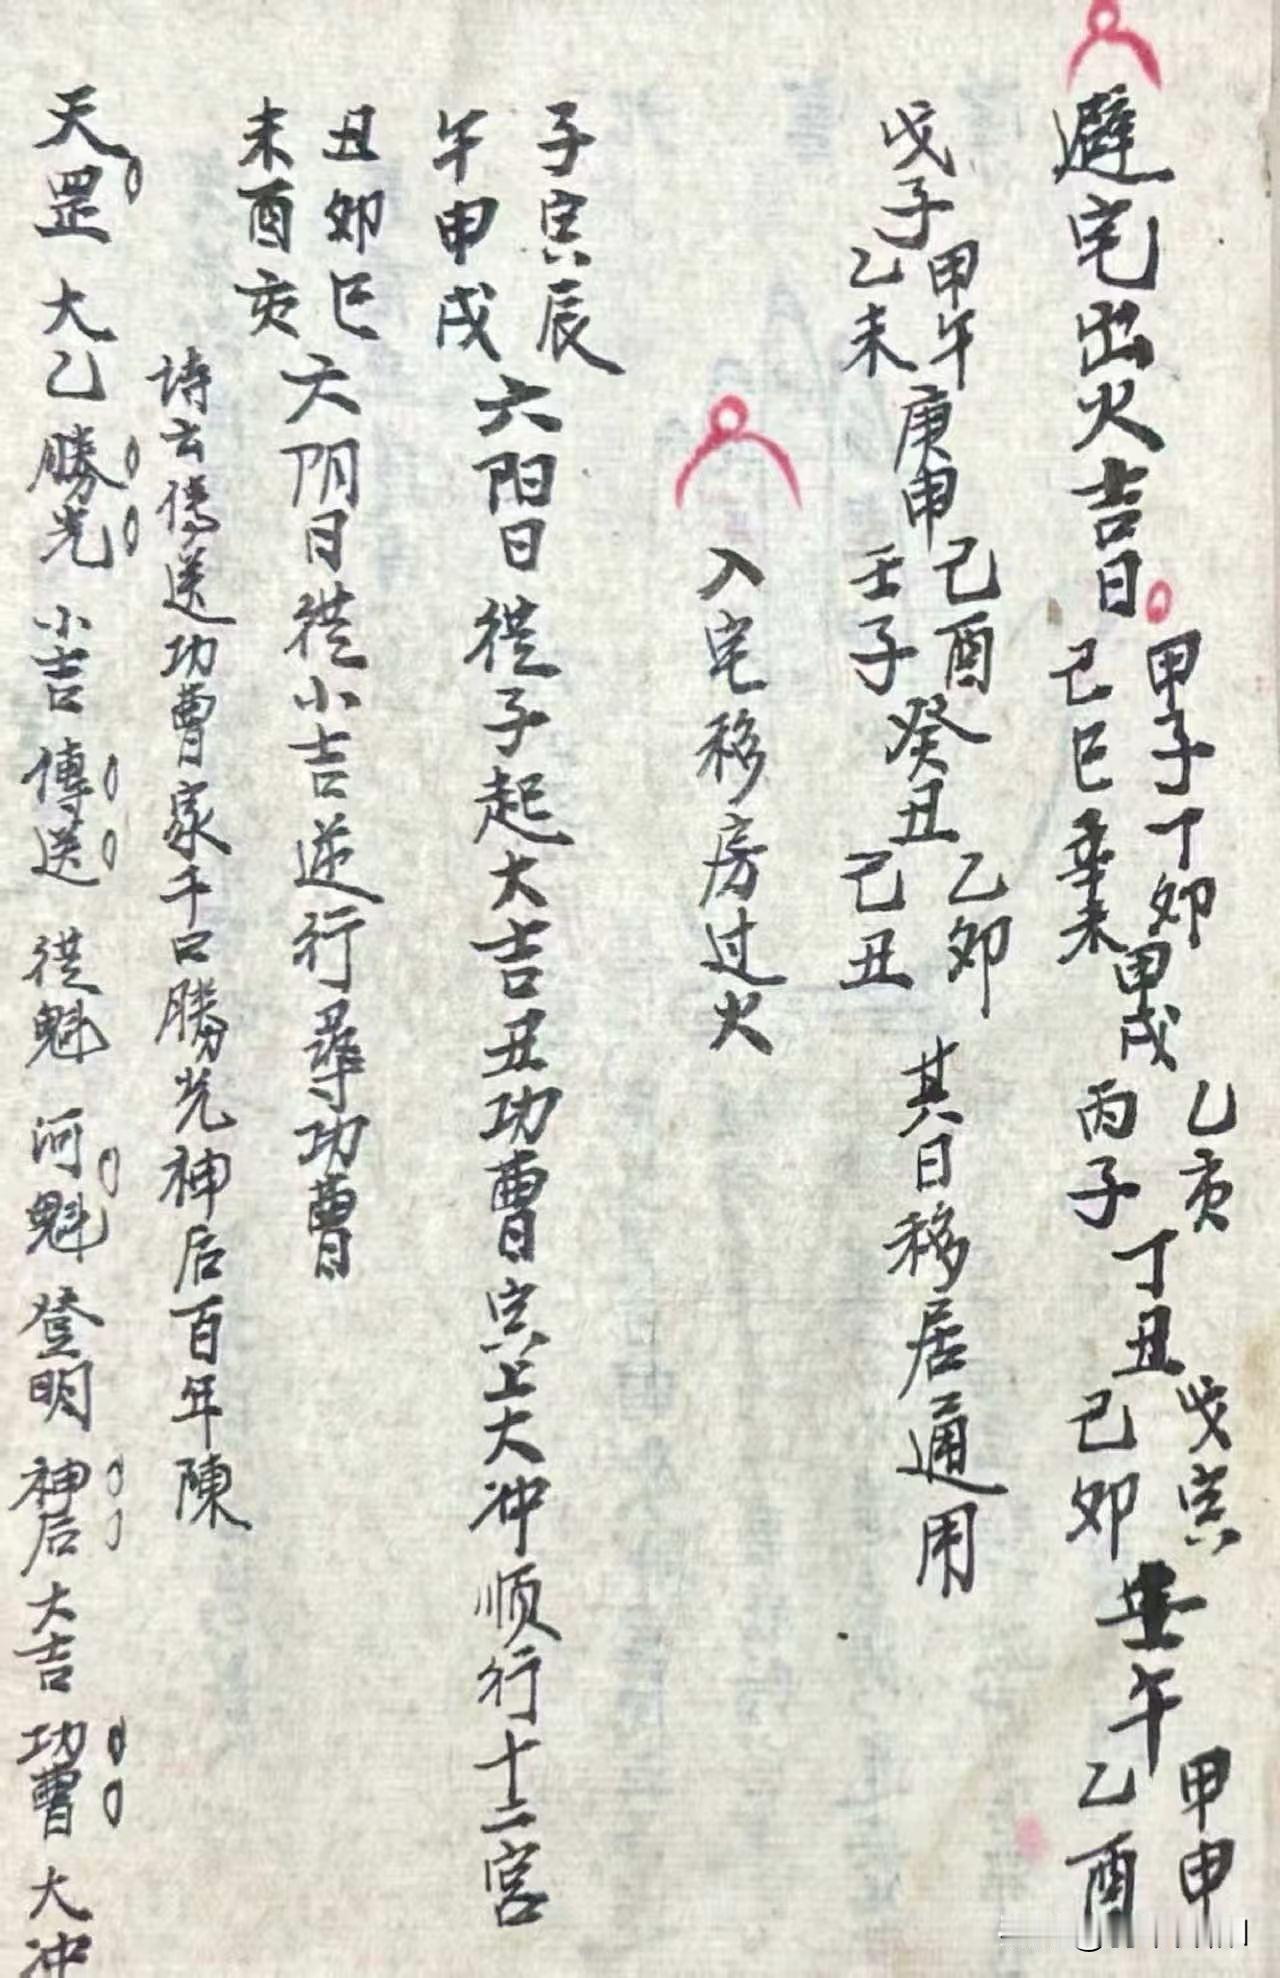 避宅出火吉日 甲子 己巳 丁卯 辛未 甲戌 乙亥 丙子 丁丑 戊寅 己卯 壬午 甲申 乙酉
戊子 甲午 乙未 庚申 己酉 壬子 癸丑 乙卯 己丑 其日移居通用
入宅移房过火
子寅辰午申戌 六阳日從子起大吉丑功曹寅上大冲顺行十二宫
丑卯巳未酉亥 六阴日從小吉逆行尋功曹
詩云傳送功曹家千口勝光神后百年陳
天罡 大乙 勝光 小吉 傳送 從魁 河魁 登明 神后 大吉 功曹 大冲